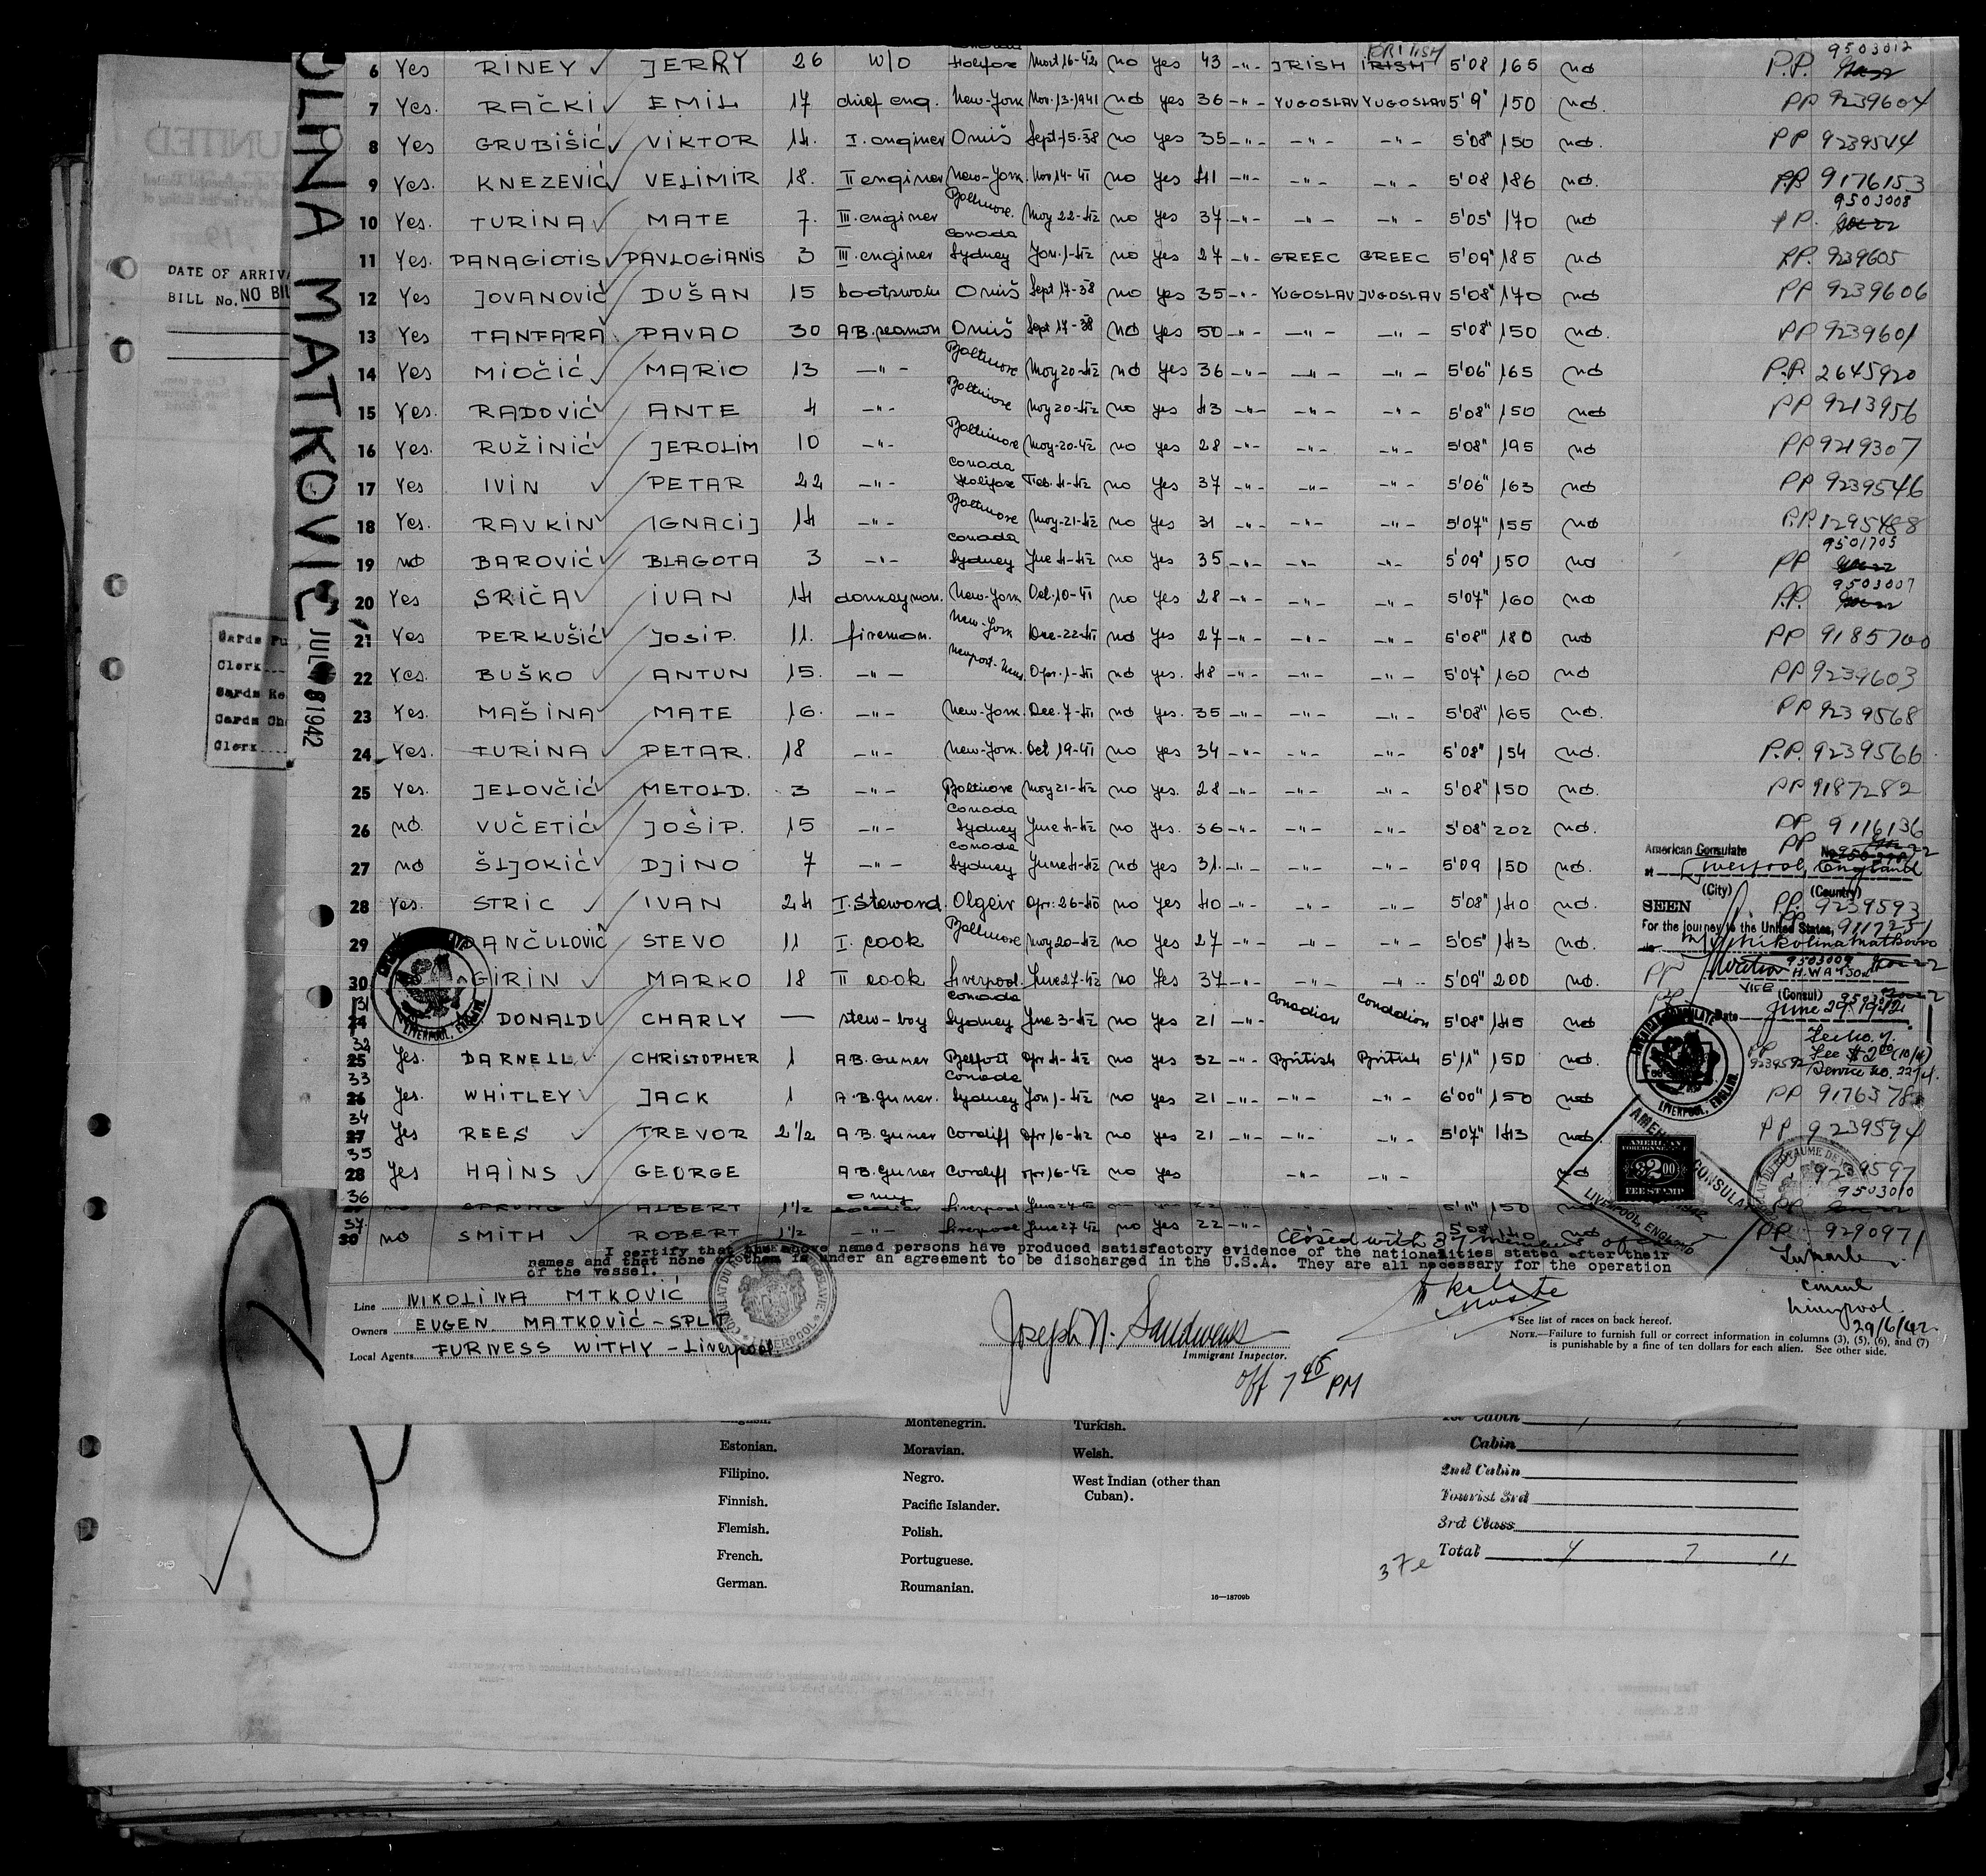 OLINA MATKOVIĆ JUL 8 1942
UNITED
DATE OF ARRIVA
BILL No. NO BIL
Cards Pu
Clerk
Cards Re
Cards Ch
Clerk
6 Yes RINEY JERRY 26 W/O Halifax Mart 16-42 no yes 43 -"- IRISH IRISH BRITISH 5'08 165 no P.P. 9503012
7 Yes. RAČKI EMIL 17 chief eng. New-York Nov. 13-1941 no yes 36 -"- YUGOSLAV YUGOSLAV 5'9" 150 no. PP 9239604
8 Yes GRUBIŠIĆ VIKTOR 14. I. enginer Omiš Sept. 15-38 no yes 35 -"- -"- -"- 5'08" 150 no. PP 9239544
9 Yes. KNEZEVIĆ VELIMIR 18. II enginer New-York. Nov 14-41 no yes 41 -"- -"- -"- 5'08 186 no. PP 9176153
10 Yes. TURINA MATE 7. III. enginer Baltimore. May 22-42 no yes 37 -"- -"- -"- 5'05" 170 no PP. 9503008
11 Yes. PANAGIOTIS PAVLOGIANIS 3 III. enginer Canada Sydney Jan. 1-42 no yes 27 -"- GREEC GREEC 5'09" 185 no PP. 9239605
12 Yes JOVANOVIĆ DUŠAN 15 Omiš Sept 17-38 no yes 35 -"- YUGOSLAV JUGOSLAV 5'08" 170 no PP 9239606
13 Yes TANFARA PAVAO 30 AB. seaman Omiš Sept 17-38 no yes 50 -"- -"- -"- 5'08" 150 no. PP 9239601
14 Yes MIOČIĆ MARIO 13 -"- Baltimore May 20-42 no yes 36 -"- -"- -"- 5'06" 165 no P.P. 2645920
15 Yes. RADOVIĆ ANTE 4 -"- Baltimore May 20-42 no yes 43 -"- -"- -"- 5'08" 150 no PP 9213956
16 Yes. RUŽINIĆ JEROLIM 10 -"- Baltimore May-20-42 no yes 28 -"- -"- -"- 5'08" 195 no PP 9219307
17 Yes IVIN PETAR 22 -"- Canada Halifax Feb. 4-42 no yes 37 -"- -"- -"- 5'06" 163 no PP 9239546
18 Yes. RAVKIN IGNACIJ 14 -"- Baltimore May-21-42 no yes 31 -"- -"- -"- 5'07" 155 no P.P. 1295488
19 no BAROVIĆ BLAGOTA 3 -"- Canada Sydney June 4-42 no yes 35 -"- -"- -"- 5'09" 150 no PP 9501705
20 Yes SRIČA IVAN 14 donkeyman. New-York Oct. 10-41 no yes 28 -"- -"- -"- 5'07" 160 no P.P. 9503007
21 Yes PERKUŠIĆ JOSIP. 11. fireman. New-York Dec-22-41 no yes 27 -"- -"- -"- 5'08" 180 no PP 9185700
22 Yes. BUŠKO ANTUN 15. -"- Newport-News Apr. 1-41 no yes. 48 -"- -"- -"- 5'07" 160 no PP 9239603
23 Yes. MAŠINA MATE 16. -"- New-York. Dec. 7-41 no yes. 35 -"- -"- -"- 5'08" 165 no. PP 9239568
24 Yes. TURINA PETAR. 18 -"- New-York. Oct 19-41 no yes 34 -"- -"- -"- 5'08" 154 no. P.P. 9239566
25 Yes. JELOVČIĆ METOLD. 3 -"- Baltimore May 21-42 no yes. 28 -"- -"- -"- 5'08" 150 no. PP 9187282
26 no. VUČETIĆ JOŠIP. 15 -"- Canada Sydney June 4-42 no yes. 36 -"- -"- -"- 5'08" 202 no. PP 9116136
27 no ŠLJOKIĆ DJINO 7 -"- Canada Sydney June 4-42 no yes 31. -"- -"- -"- 5'09 150 no. PP
28 Yes. STRIC IVAN 24 I. Steward. Olgeir Apr: 26-40 no yes 40 -"- -"- -"- 5'08" 140 no. PP. 9239593
29 DANČULOVIĆ STEVO 11 I. cook Baltimore May 20-42 no yes 27 -"- -"- -"- 5'05" 143 no. PP 9117251
30 GIRIN MARKO 18 II cook Liverpool. June 27-42 no yes 37 -"- -"- -"- 5'09" 200 no. PP 9503009
31 24 DONALD CHARLY — stew-boy Canada Sydney June 3-42 no yes 21 -"- Canadian Canadian 5'08" 145 no PP
32 25 Yes. DARNELL CHRISTOPHER 1 AB. Guner Belfast Apr 4-42 no yes 32 -"- British British 5'11" 150 no. PP 9239592
33 26 Yes. WHITLEY JACK 1 A.B. guner. Canada Sydney Jan 1-42 no yes 21 -"- -"- -"- 6'00" 150 no PP 9176378
34 27 Yes REES TREVOR 2 1/2 A B. guner Cardiff Apr 16-42 no yes 21 -"- -"- -"- 5'07" 143 no. PP 9239594
35 28 Yes HAINS GEORGE A.B. guner Cardiff Apr 16-42 no yes -"- -"- no 9239597
36 no ALBERT 1 1/2 army Liverpool June 27-42 5'11" 150 no PP 9503010
37. 30 no SMITH ROBERT 1 1/2 -"- Liverpool June 27 42 no yes 22 -"- 5'08 140 no PP 9290971
American Consulate
at Liverpool, England
(City) (Country)
SEEN
For the journey to the United States,
Nikolina Matkovic
H. WATSON
VICE (Consul)
Date June 29, 1942
Fee No. 7.
Fee $2.00 (10/4)
Service No. 2274.
AMERICAN CONSULATE LIVERPOOL, ENGLAND.
AMERICAN FOREIGN SERVICE $2.00 FEE STAMP
Closed with 37 members of
I certify that the above named persons have produced satisfactory evidence of the nationalities stated after their
names and that none of them is under an agreement to be discharged in the U.S.A. They are all necessary for the operation
of the vessel.
Line NIKOLINA MTKOVIĆ
Owners EUGEN MATKOVIĆ - SPLIT
Local Agents FURNESS WITHY - Liverpool
CONSULAT DU ROYAUME DE YOUGOSLAVIE LIVERPOOL
Joseph N.
Immigrant Inspector.
off 7 45 PM
Consul
Liverpool.
29/6/42.
* See list of races on back hereof.
NOTE.—Failure to furnish full or correct information in columns (3), (5), (6), and (7)
is punishable by a fine of ten dollars for each alien. See other side.
Montenegrin. Turkish. 1st Cabin
Estonian. Moravian. Welsh. Cabin
Filipino. Negro. West Indian (other than Cuban). 2nd Cabin
Finnish. Pacific Islander. Tourist 3rd
Flemish. Polish. 3rd Class
French. Portuguese. Total 4 7 11
German. Roumanian.
37e
16—18709b